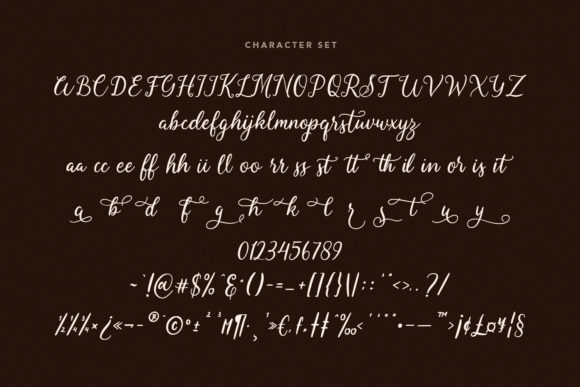 CHARACTER SET
ABCDEFGHIJKLMNOPQRSTUVWXYZ
abcdefghijklmnopqrstuvwxyz
aa cc ee ff hh ii ll oo rr ss st tt th il in or is it
a b d f g h k l r s t u y
0123456789
~`!@#$%^&*()-=_+[]{}\|:;'"<>,.?/